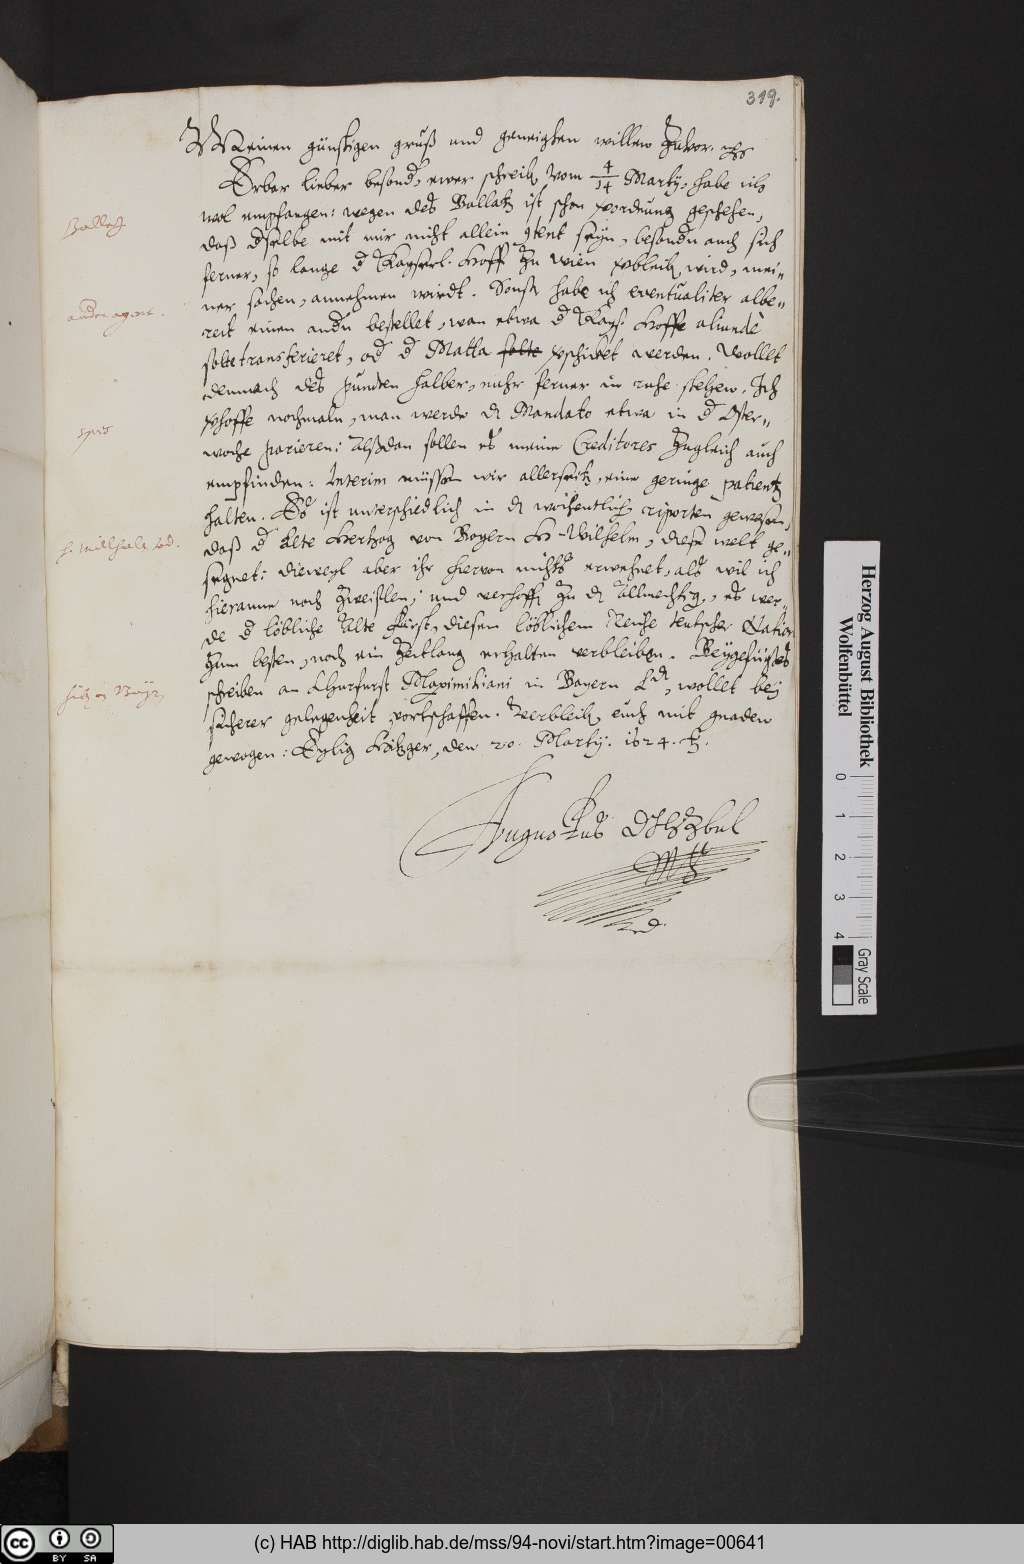 319.
Meinen günstigen gruß und geneigten willen zuvor.
Erbar lieber besonder, ewer schreiben vom 4/14 Martij, habe ich
wol empfangen: wegen des Ballatz ist schon verordnung geschehen,
daß derselbe mit mir nicht allein content seyn, besondern auch sich
ferner, so lange der Kayserl. Hoff zu Wien verbleiben wird, mei-
ner sachen, annehmen wirdt. Sonst habe ich eventualiter albe-
reit einen andern bestellet, wan etwa der Kays. Hoffe aliunde
solte transferieret, oder der Matta solte verschicket werden. Wollet
demnach des puncten halber, mehr ferner in ruhe stehen. Ich
verhoffe nochmaln, man werde dem Mandato etwa in der Oster-
woche parieren: Alßdan sollen es meine Creditores zugleich auch
empfinden: Interim müssen wir allerseits, eine geringe patientz
halten. Es ist unterschiedlich in den wöchentlichen rapporten gewesen,
daß der alte Hertzog von Bayern H. Wilhelm, diese welt ge-
segnet: dieweyl aber ihr hiervon nichts erwehnet, als wil ich
hieranne noch zweiflen, und verhoffe zu dem Allmechtigen, es wer-
de der löbliche Alte Fürst, diesem löblichem Reiche teutscher Nation
zum besten, noch ein zeitlang erhalten verbleiben. Beygefügtes
schreiben an Churfurst Maximiliani in Bayern Ld, wollet bey
sicherer gelegenheit, vortschaffen. Verbleibe euch mit gnaden
gewogen: Eylig Hitzger, den 20. Martij. 1624.
Augustus DHZBUL
Mpp
Ballatz
ander agent.
H. Wilhelm
Herzog August Bibliothek
Wolfenbüttel
0 1 2 3 4
Gray Scale
CC BY SA
(c) HAB http://diglib.hab.de/mss/94-novi/start.htm?image=00641